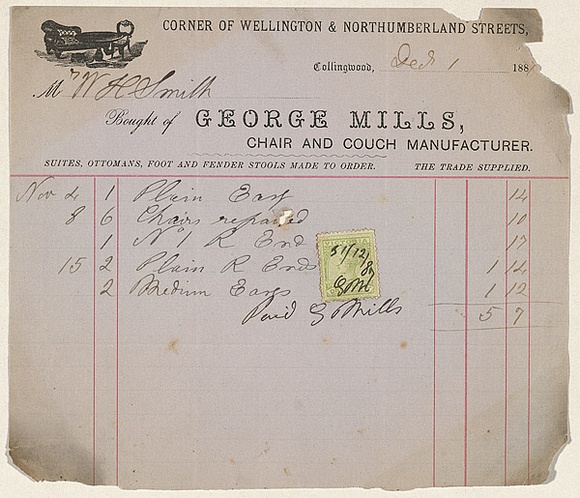 CORNER OF WELLINGTON & NORTHUMBERLAND STREETS,
Collingwood, Dec 1 188
Mr W H Smith
Bought of GEORGE MILLS,
CHAIR AND COUCH MANUFACTURER.
SUITES, OTTOMANS, FOOT AND FENDER STOOLS MADE TO ORDER. THE TRADE SUPPLIED.
Nov 4 1 Plain Easy 14
8 6 Chairs repaired 10
1 No 1 R End 17
15 2 Plain R Ends 1 14
2 Medium Easys 1 12
Paid G Mills 5 7
31/12/87
G M